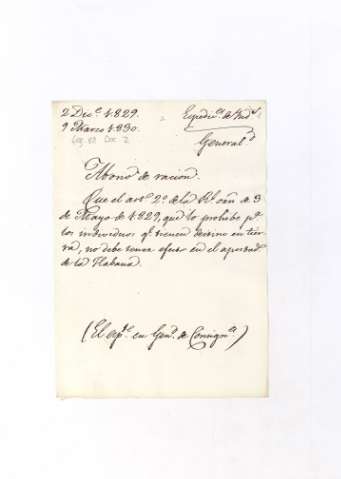 2 Dec.e 1829.
9 Marzo 1830.
Leg. Doc. 2
Expedic.n de Ind.s
General.d
Abono de racion.
Que el art.o 2.o de la R.l orn de 3
de Mayo de 1829, que lo prohibe p.a
los individuos q.e tienen destino en tier-
ra, no debe tener efecto en el apostad.o
de la Habana.
(El exp.te en Gen.l de Consign.s)